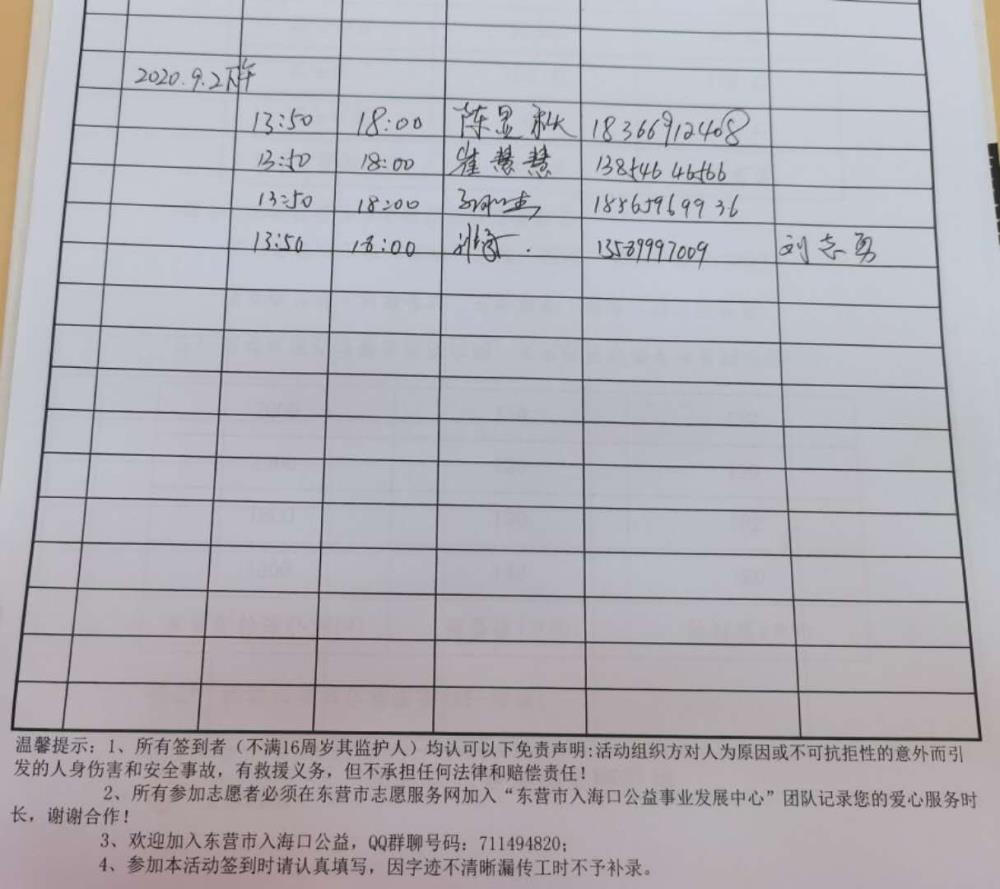 2020.9.2下午
13:50 18:00 陈显秋 18366912408
13:50 18:00 崔慧慧 13854646566
13:50 18:00 18865969936
13:50 18:00 13589997009 刘志勇
温馨提示：1、所有签到者（不满16周岁其监护人）均认可以下免责声明：活动组织方对人为原因或不可抗拒性的意外而引
发的人身伤害和安全事故，有救援义务，但不承担任何法律和赔偿责任！
2、所有参加志愿者必须在东营市志愿服务网加入“东营市入海口公益事业发展中心”团队记录您的爱心服务时
长，谢谢合作！
3、欢迎加入东营市入海口公益，QQ群聊号码：711494820；
4、参加本活动签到时请认真填写，因字迹不清晰漏传工时不予补录。